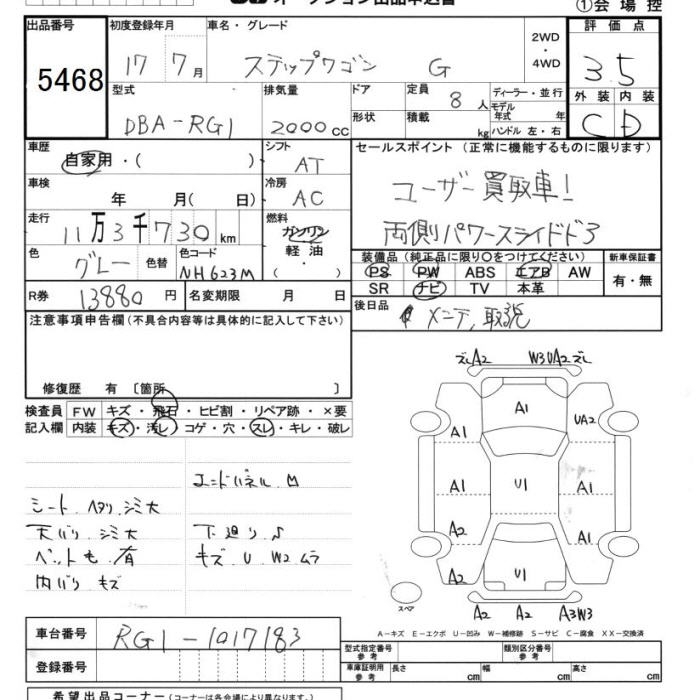 オークション出品申込書
①会場控
出品番号 5468
初度登録年月 17 7月
車名・グレード ステップワゴン G
2WD・4WD
評価点 3.5
外装 内装
C D
型式 DBA-RG1
排気量 2000cc
ドア
形状
定員 8人
積載 kg
ディーラー・並行
モデル年式 年
ハンドル 左・右
車歴 自家用・( )
シフト AT
セールスポイント (正常に機能するものに限ります)
ユーザー買取車!
両側パワースライドドア
車検 年 月( 日)
冷房 AC
走行 11万3千730km
燃料 ガソリン
軽油・
( )
色 グレー 色替
色コード NH623M
装備品(純正品に限り○をつけてください)
PS PW ABS エアB AW
SR ナビ TV 本革
新車保証書
有・無
R券 13880円
名変期限 月 日
後日品 メンテ,取説
注意事項申告欄(不具合内容等は具体的に記入して下さい)
修復歴 有 〔箇所 〕
検査員記入欄
FW キズ・飛石・ヒビ割・リペア跡・×要
内装 キズ・汚レ・コゲ・穴・スレ・キレ・破レ
エンドパネル M
シート ヘタリ.シミ大
天バリ.シミ大
下廻り S
ペット毛.有
キズ U W2 ムラ
内バリ キズ
ズレA2 W3UA2ズレ
A1
UA2
A1
A1
U1
A1
A2
A1
A2
U1
A2 A2 A3W3
スペア
A-キズ E-エクボ U-凹み W-補修跡 S-サビ C-腐食 XX-交換済
車台番号 RG1-1017183
登録番号
型式指定番号 参考
類別区分番号 参考
車庫証明用 参考 長さ cm 幅 cm 高さ cm
希望出品コーナー(コーナーは各会場により異なります。)